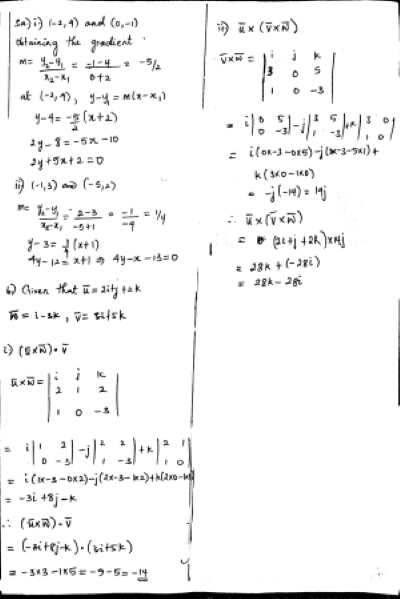 5a) i) (-2,4) and (0,-1)
Obtaining the gradient
m = y₂-y₁/x₂-x₁ = -1-4/0+2 = -5/2
at (-2,4), y-y₁ = m(x-x₁)
y-4 = -5/2 (x+2)
2y-8 = -5x-10
2y+5x+2=0
ii) (-1,3) and (-5,2)
m = y₂-y₁/x₂-x₁ = 2-3/-5+1 = -1/-4 = 1/4
y-3 = 1/4 (x+1)
4y-12 = x+1 ⇒ 4y-x-13=0
b) Given that u̅ = 2i+j+2k
w̅ = i-3k, v̅ = 3i+5k
i) (u̅×w̅)•v̅
u̅×w̅ = | i j k
2 1 2
1 0 -3 |
= i |1 2 -j |2 2 +k |2 1
0 -3| 1 -3| 1 0|
= i(1×-3-0×2)-j(2×-3-1×2)+k(2×0-1×1)
= -3i+8j-k
∴ (u̅×w̅)•v̅
= (-3i+8j-k)•(3i+5k)
= -3×3-1×5 = -9-5 = -14
ii) u̅×(v̅×w̅)
v̅×w̅ = | i j k
3 0 5
1 0 -3 |
= i |0 5 -j |3 5 +k |3 0
0 -3| 1 -3| 1 0|
= i(0×-3-0×5)-j(3×-3-5×1)+
k(3×0-1×0)
= -j(-14) = 14j
∴ u̅×(v̅×w̅)
= (2i+j+2k)×14j
= 28k+(-28i)
= 28k-28i